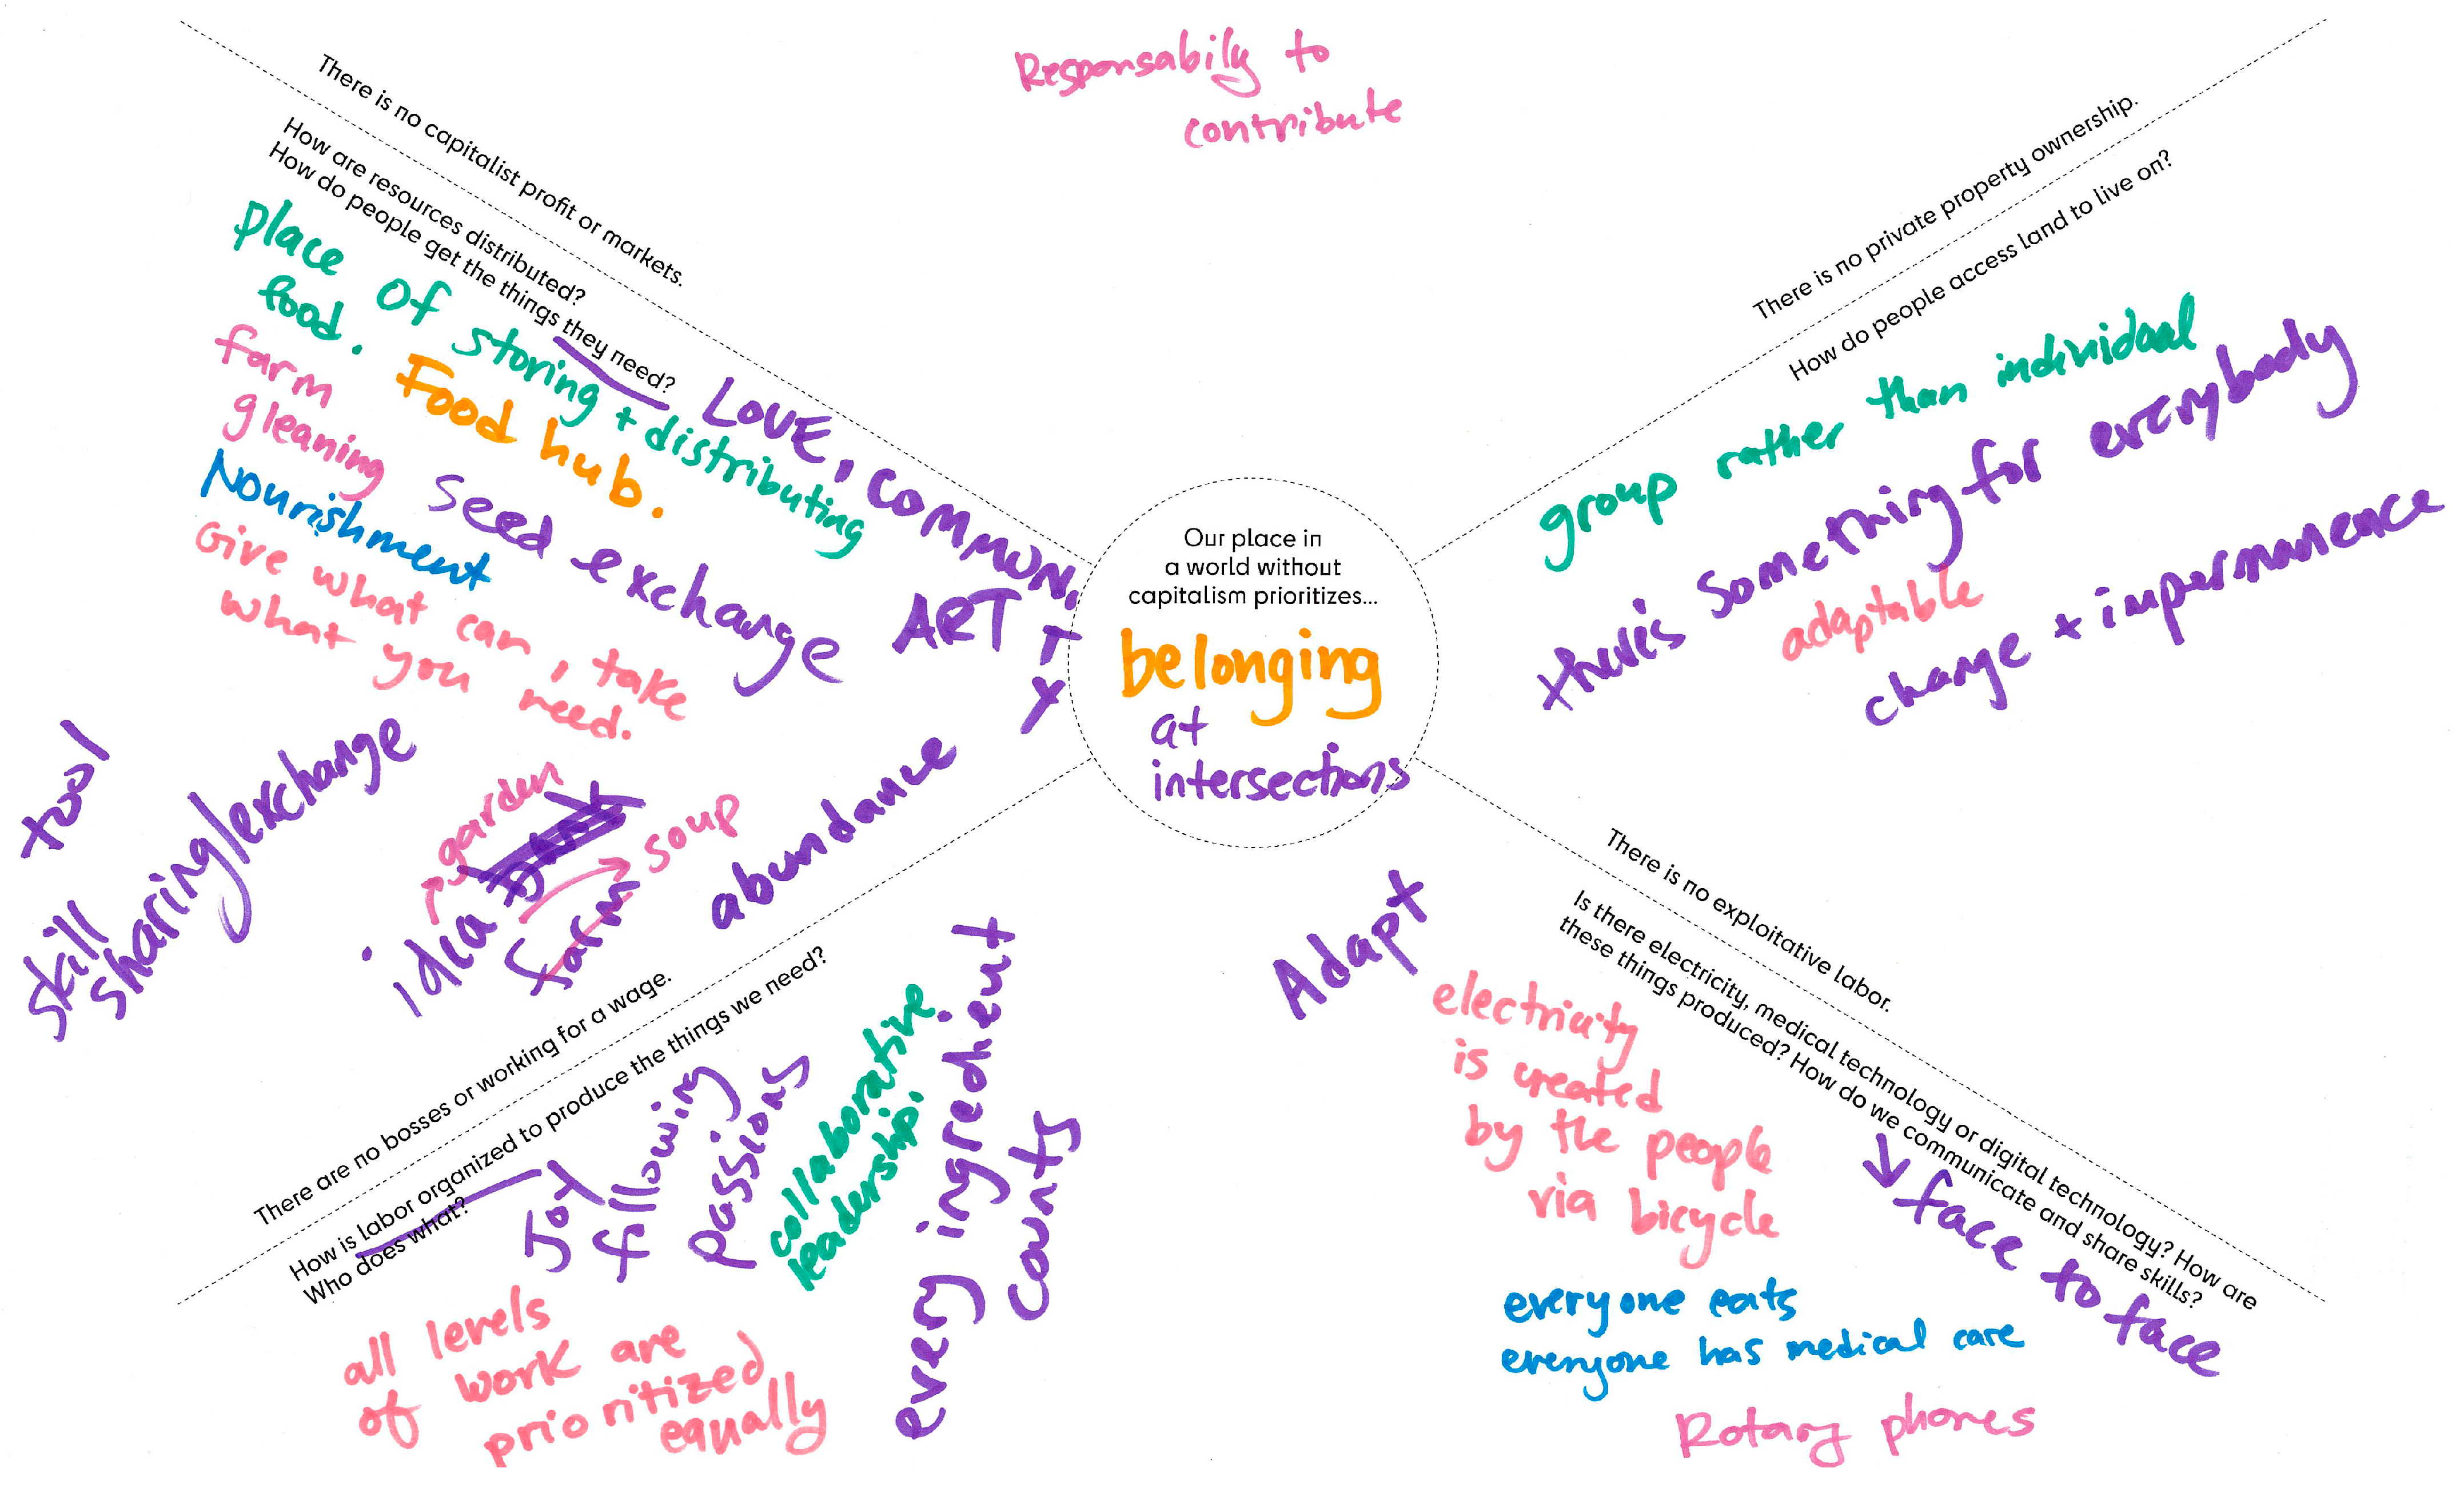 Responsabily to
contribute
There is no capitalist profit or markets.
How are resources distributed?
How do people get the things they need?
place of storing + distributing
food.
Food hub.
farm
gleaning
Nourishment
seed exchange
Give what can, take
what you need.
LOVE, COMMON,
ART
T
Y
tool
skill
sharing/exchange
garden
soup
idea
farm
abundance
Our place in
a world without
capitalism prioritizes...
belonging
at
intersections
There is no private property ownership.
How do people access land to live on?
group rather than individual
there's something for everybody
adaptable
change + impermanence
There are no bosses or working for a wage.
How is labor organized to produce the things we need?
Who does what?
Joy
following
passions
collaborative
leadership.
every ingredient
counts
all levels
of work are
prioritized
equally
Adapt
There is no exploitative labor.
Is there electricity, medical technology or digital technology? How are
these things produced? How do we communicate and share skills?
electricity
is created
by the people
via bicycle
face to face
everyone eats
everyone has medical care
Rotary phones